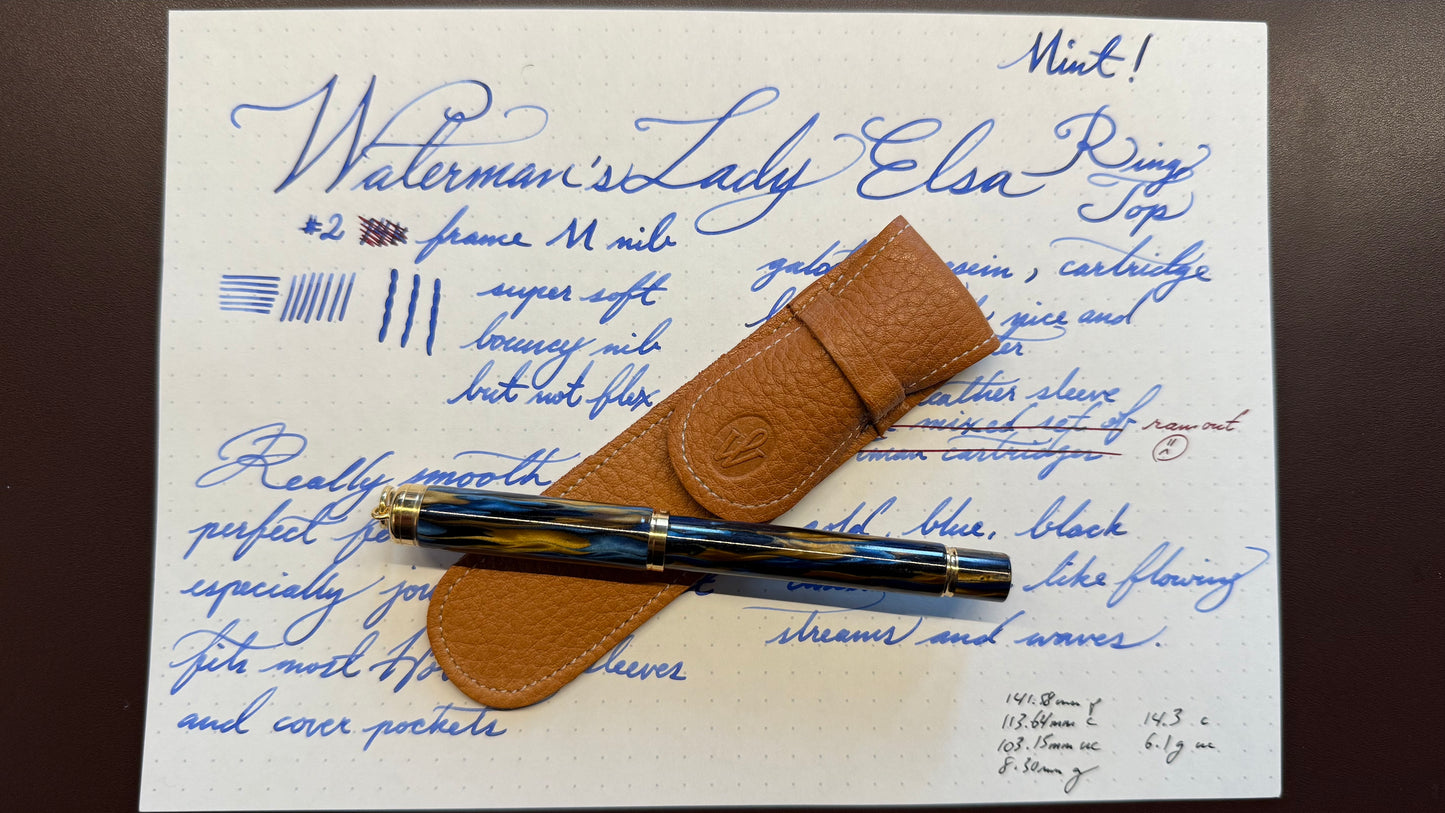 Mint!
Waterman's Lady Elsa Ring Top
#2 frame M nib
super soft
bouncy nib
but not flex
, cartridge
nice and
leather sleeve
mixed set of ran out
cartridges
Really smooth
perfect
especially
fits most sleeves
and cover pockets
gold, blue, black
like flowing
streams and waves.
141.58mm p
113.64mm c 14.3 c
103.15mm uc 6.1g uc
8.30mm g
W